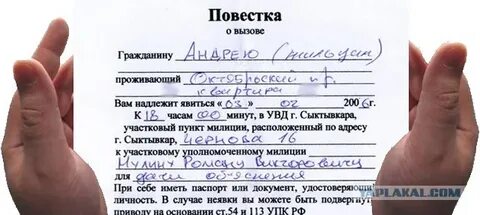 Повестка
о вызове
Гражданину Андрею (жильцу)
проживающий Октябрьский пр.
квартира
Вам надлежит явиться "03" 02 2006г.
К 18 часам 00 минут, в УВД г. Сыктывкара,
участковый пункт милиции, расположенный по адресу
г. Сыктывкар, Чернова 16
к участковому уполномоченному милиции
Мулину Роману Викторовичу
для дачи объяснения
При себе иметь паспорт или документ, удостоверяющий
личности. В случае неявки вы можете быть подвергнуты
приводу на основании ст.54 и 113 УПК РФ
YAPLAKAL.COM